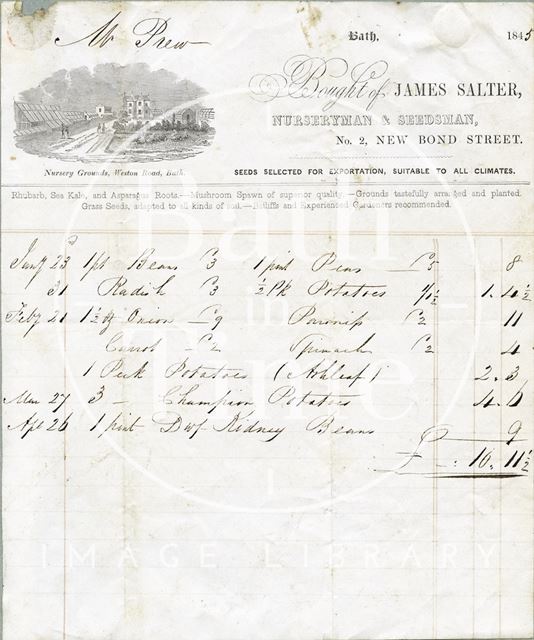 Mr Prew
Bath, 1845
Bought of JAMES SALTER,
NURSERYMAN & SEEDSMAN,
No. 2, NEW BOND STREET.
Nursery Grounds, Weston Road, Bath.
SEEDS SELECTED FOR EXPORTATION, SUITABLE TO ALL CLIMATES.
Rhubarb, Sea Kale, and Asparagus Roots.—Mushroom Spawn of superior quality.—Grounds tastefully arranged and planted.
Grass Seeds, adapted to all kinds of soil.—Bailiffs and Experienced Gardeners recommended.
Jany 23 1 pt Beans 3 1 pint Peas 5 8
31 Radish 3 ½ Pk Potatoes 1/1½ 1. 4½
Feby 21 1½ oz Onion 9 Parsnip 2 11
Carrot 2 Spinach 2 4
1 Peck Potatoes (Ashleaf) 2. 3
Mar 27 3 — Champion Potatoes 4. 6
Apl 26 1 pint Dwf Kidney Beans 9
£ —: 10. 11½
Bath
in
Time
IMAGE LIBRARY